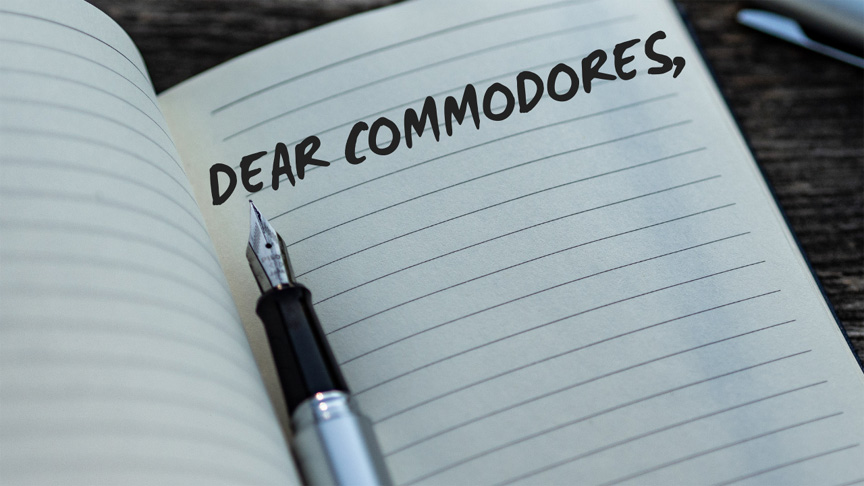 DEAR COMMODORES,